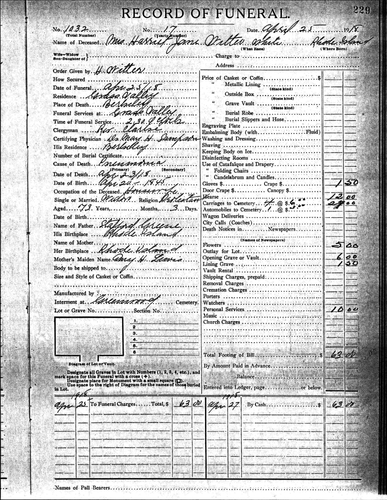 229
RECORD OF FUNERAL.
No. 1032 No. 17 Date, April 25 1918
Name of Deceased Mrs. Harriet Jane Witter White Rhode Island
(Where Born)
Charge to
Address
Order Given by H Witter
How Secured
Date of Funeral Apr 25/18
Residence Grass Valley
Place of Death Berkeley
Funeral Services at Grass Valley
Time of Funeral Service 2:30
Clergyman Rev.
Certifying Physician Dr Mary H. Sampson
His Residence Berkeley
Number of Burial Certificate
Cause of Death Pneumonia
Date of Death Apr 23/18
Date of Birth Apr 20 - 1845
Occupation of the Deceased Housewife
Single or Married Widow Religion Protestant
Aged 73 Years Months 3 Days
Name of Father Greene
His Birthplace Rhode Island
Name of Mother
Her Birthplace Rhode Island
Mother's Maiden Name Mary H. Lewis
Body to be shipped to
Size and Style of Casket or Coffin
Manufactured by
Interment at Greenwood Cemetery
Lot or Grave No. Section No.
Diagram of Lot or Vault
Designate all Graves in Lot with Numbers (1, 2, 3, 4, etc.), and mark space for this Funeral with a cross (+).
Designate place for Monument with a small square
Use space to the right of Diagram for the names of those buried in Lot.
Price of Casket or Coffin $
" Metallic Lining
(State kind)
" Outside Box
(State kind)
" Grave Vault
(State kind)
" Burial Robe
(State kind)
" Burial Slippers and Hose
Engraving Plate
Embalming Body (with Fluid)
Washing and Dressing
Shaving
Keeping Body on Ice
Disinfecting Rooms
Use of Catafalque and Drapery
" Folding Chairs
" Candelabrum and Candles
Gloves $ Crape $ 1 50
Door Crape $ Canopy $
Hearse 12 00
Carriages to Cemetery 4 @ $ 6 00 24 00
Automobiles to Cemetery @ $
Wagon Deliveries
City Calls (Coaches)
Death Notices in Newspapers
(Names of Newspapers)
Flowers 5 00
Outlay for Lot
Opening Grave or Vault 6 00
Lining Grave 1 50
Vault Rental
Shipping Charges, prepaid
Removal Charges
Cremation Charges
Porters
Watchers
Personal Services 10 00
Music
Church Charges
Total Footing of Bill $ 63 00
By Amount Paid in Advance
Balance
Entered into Ledger, page or below.
Apr 25 To Funeral Charges Total, $ 63 00 Apr 27 By Cash $ 63 00
Names of Pall Bearers